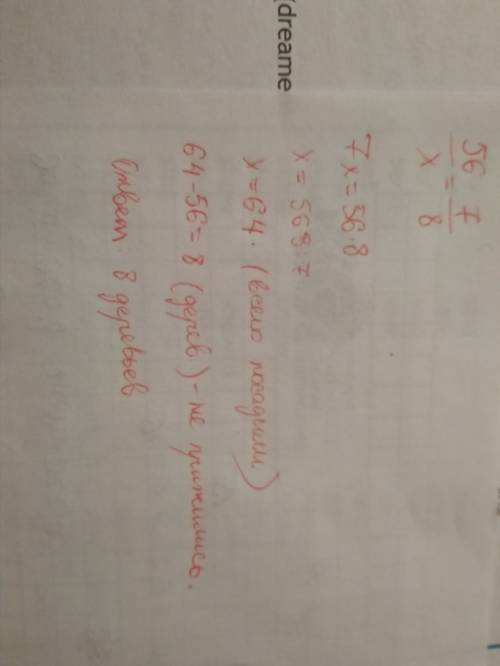 (dreame
56/x = 7/8
7x = 56·8
x = 56 8:7
x = 64. (всего посадили)
64-56=8 (дерев) - не прижились.
Ответ. 8 деревьев